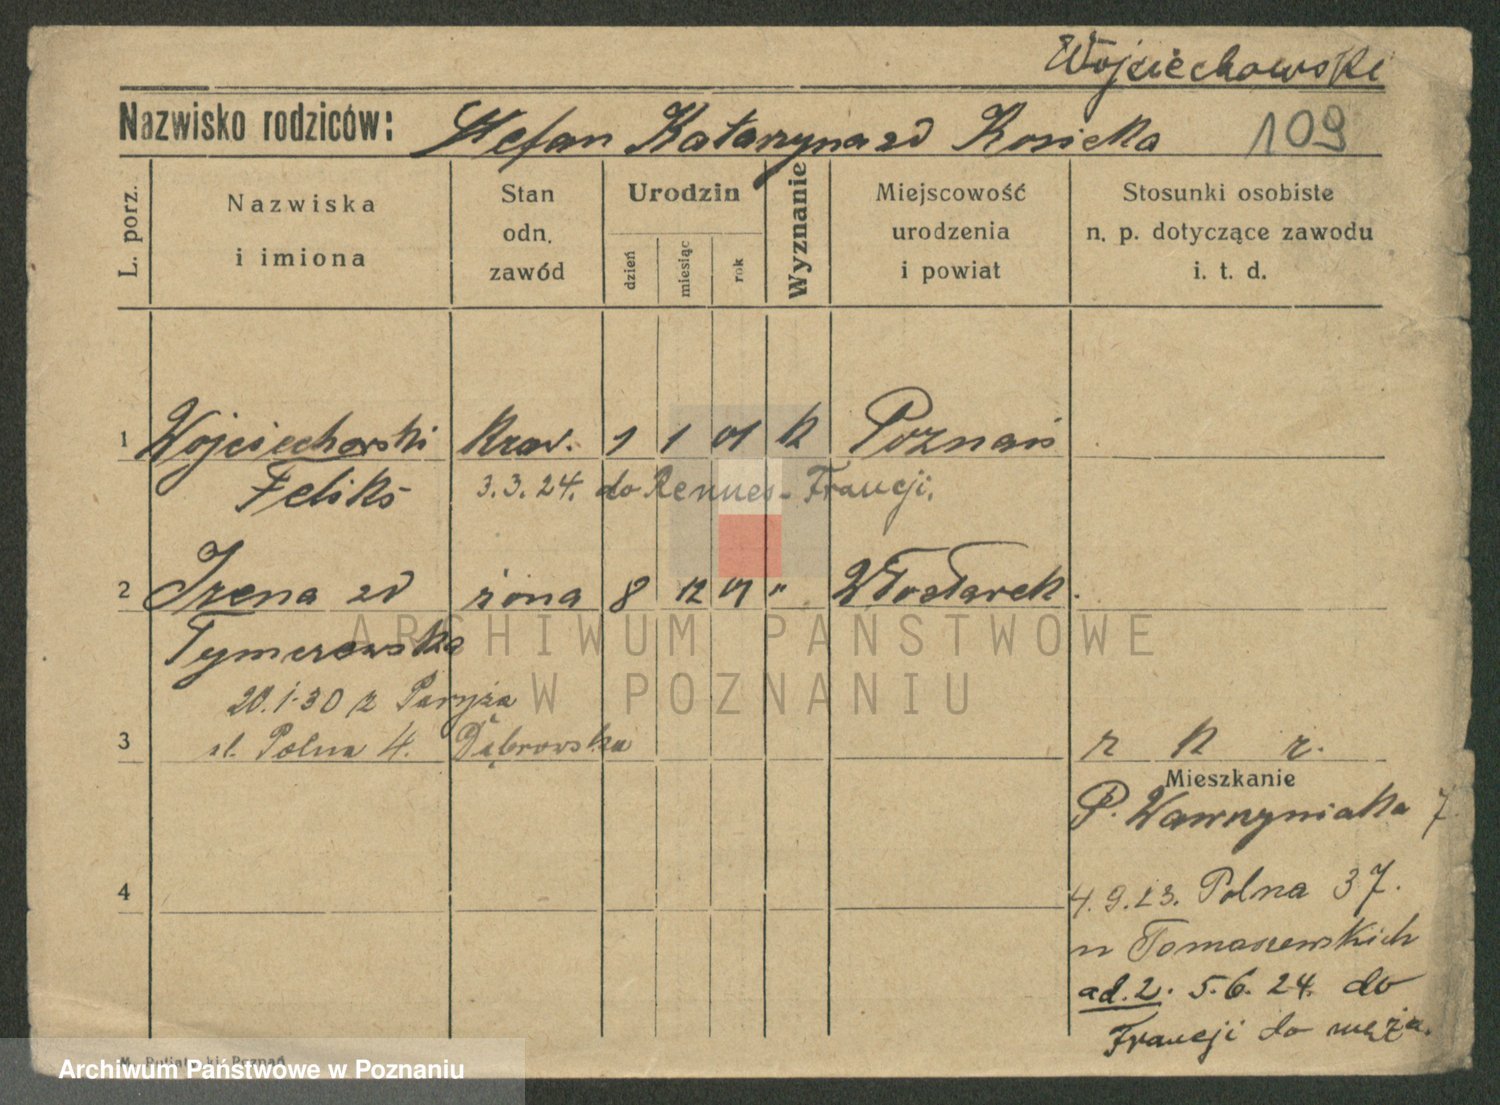 Wojciechowski
Nazwisko rodziców: Stefan Katarzyna zd Kosicka 109
L. porz.
Nazwiska
i imiona
Stan
odn.
zawód
Urodzin
dzień
miesiąc
rok
Wyznanie
Miejscowość
urodzenia
i powiat
Stosunki osobiste
n. p. dotyczące zawodu
i. t. d.
1 Wojciechowski kraw. 1 1 01 k Poznań
Feliks 3.3.24. do Rennes - Francji.
2 Irena zd żona 8 12 "
Tymczewska
20.1.30 z Paryża
3 ul. Polna 4. Dąbrowska
Mieszkanie
P. Wawrzyniaka 7
4
4.9.23. Polna 37.
u Tomaszewskich
ad.2. 5.6.24. do
Francji do męża.
M. Putiatycki, Poznań
ARCHIWUM PAŃSTWOWE
W POZNANIU
Archiwum Państwowe w Poznaniu